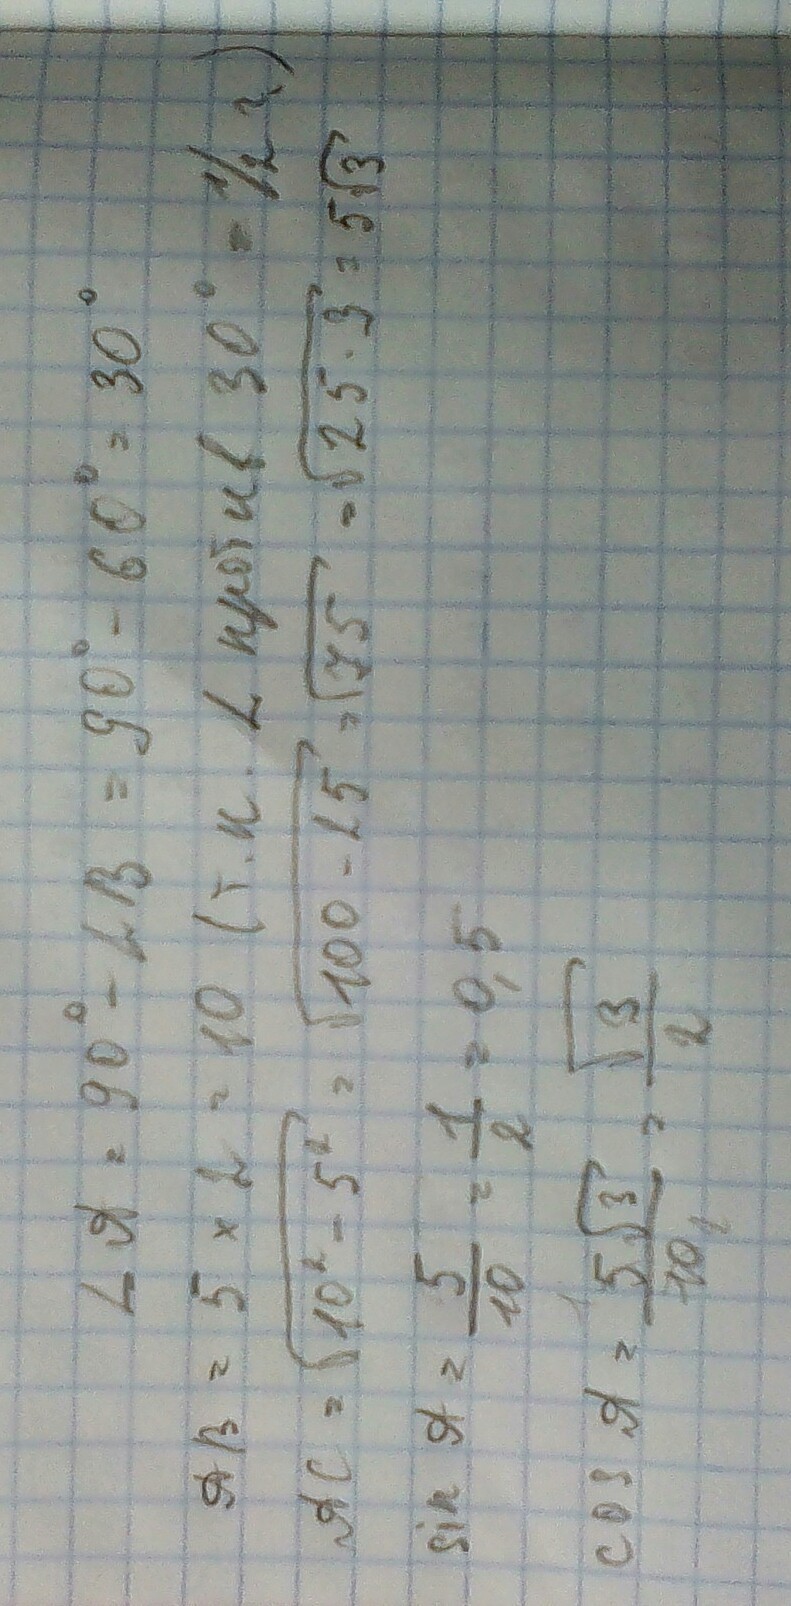 ∠A = 90° - ∠B = 90° - 60° = 30°
AB = 5 × 2 = 10 (т.к. ∠ против 30° = 1/2 г)
AC = √10² - 5² = √100 - 25 = √75 = √25·3 = 5√3
sin A = 5/10 = 1/2 = 0,5
cos A = 5√3/10₂ = √3/2